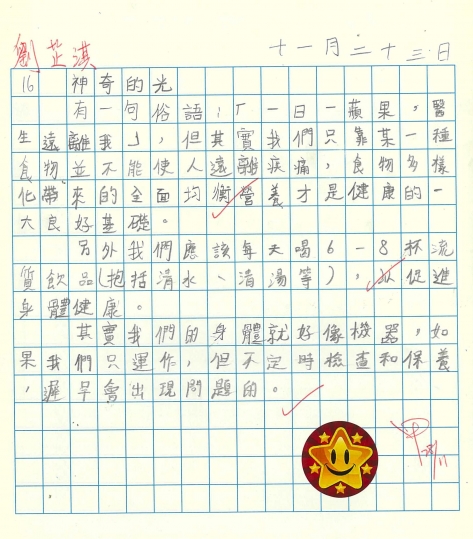 劉芷淇
十一月二十三日
16 神奇的光
有一句俗語:「一日一蘋果,醫
生遠離我」,但其實我們只靠某一種
食物並不能使人遠離疾痛,食物多樣
化帶來的全面均衡營養才是健康的一
大良好基礎。
另外我們應該每天喝6-8杯流
質飲品(抱括清水、清湯等),以促進
身體健康。
其實我們的身體就好像機器,如
果我們只運作,但不定時檢查和保養
,遲早會出現問題的。
甲
25/11